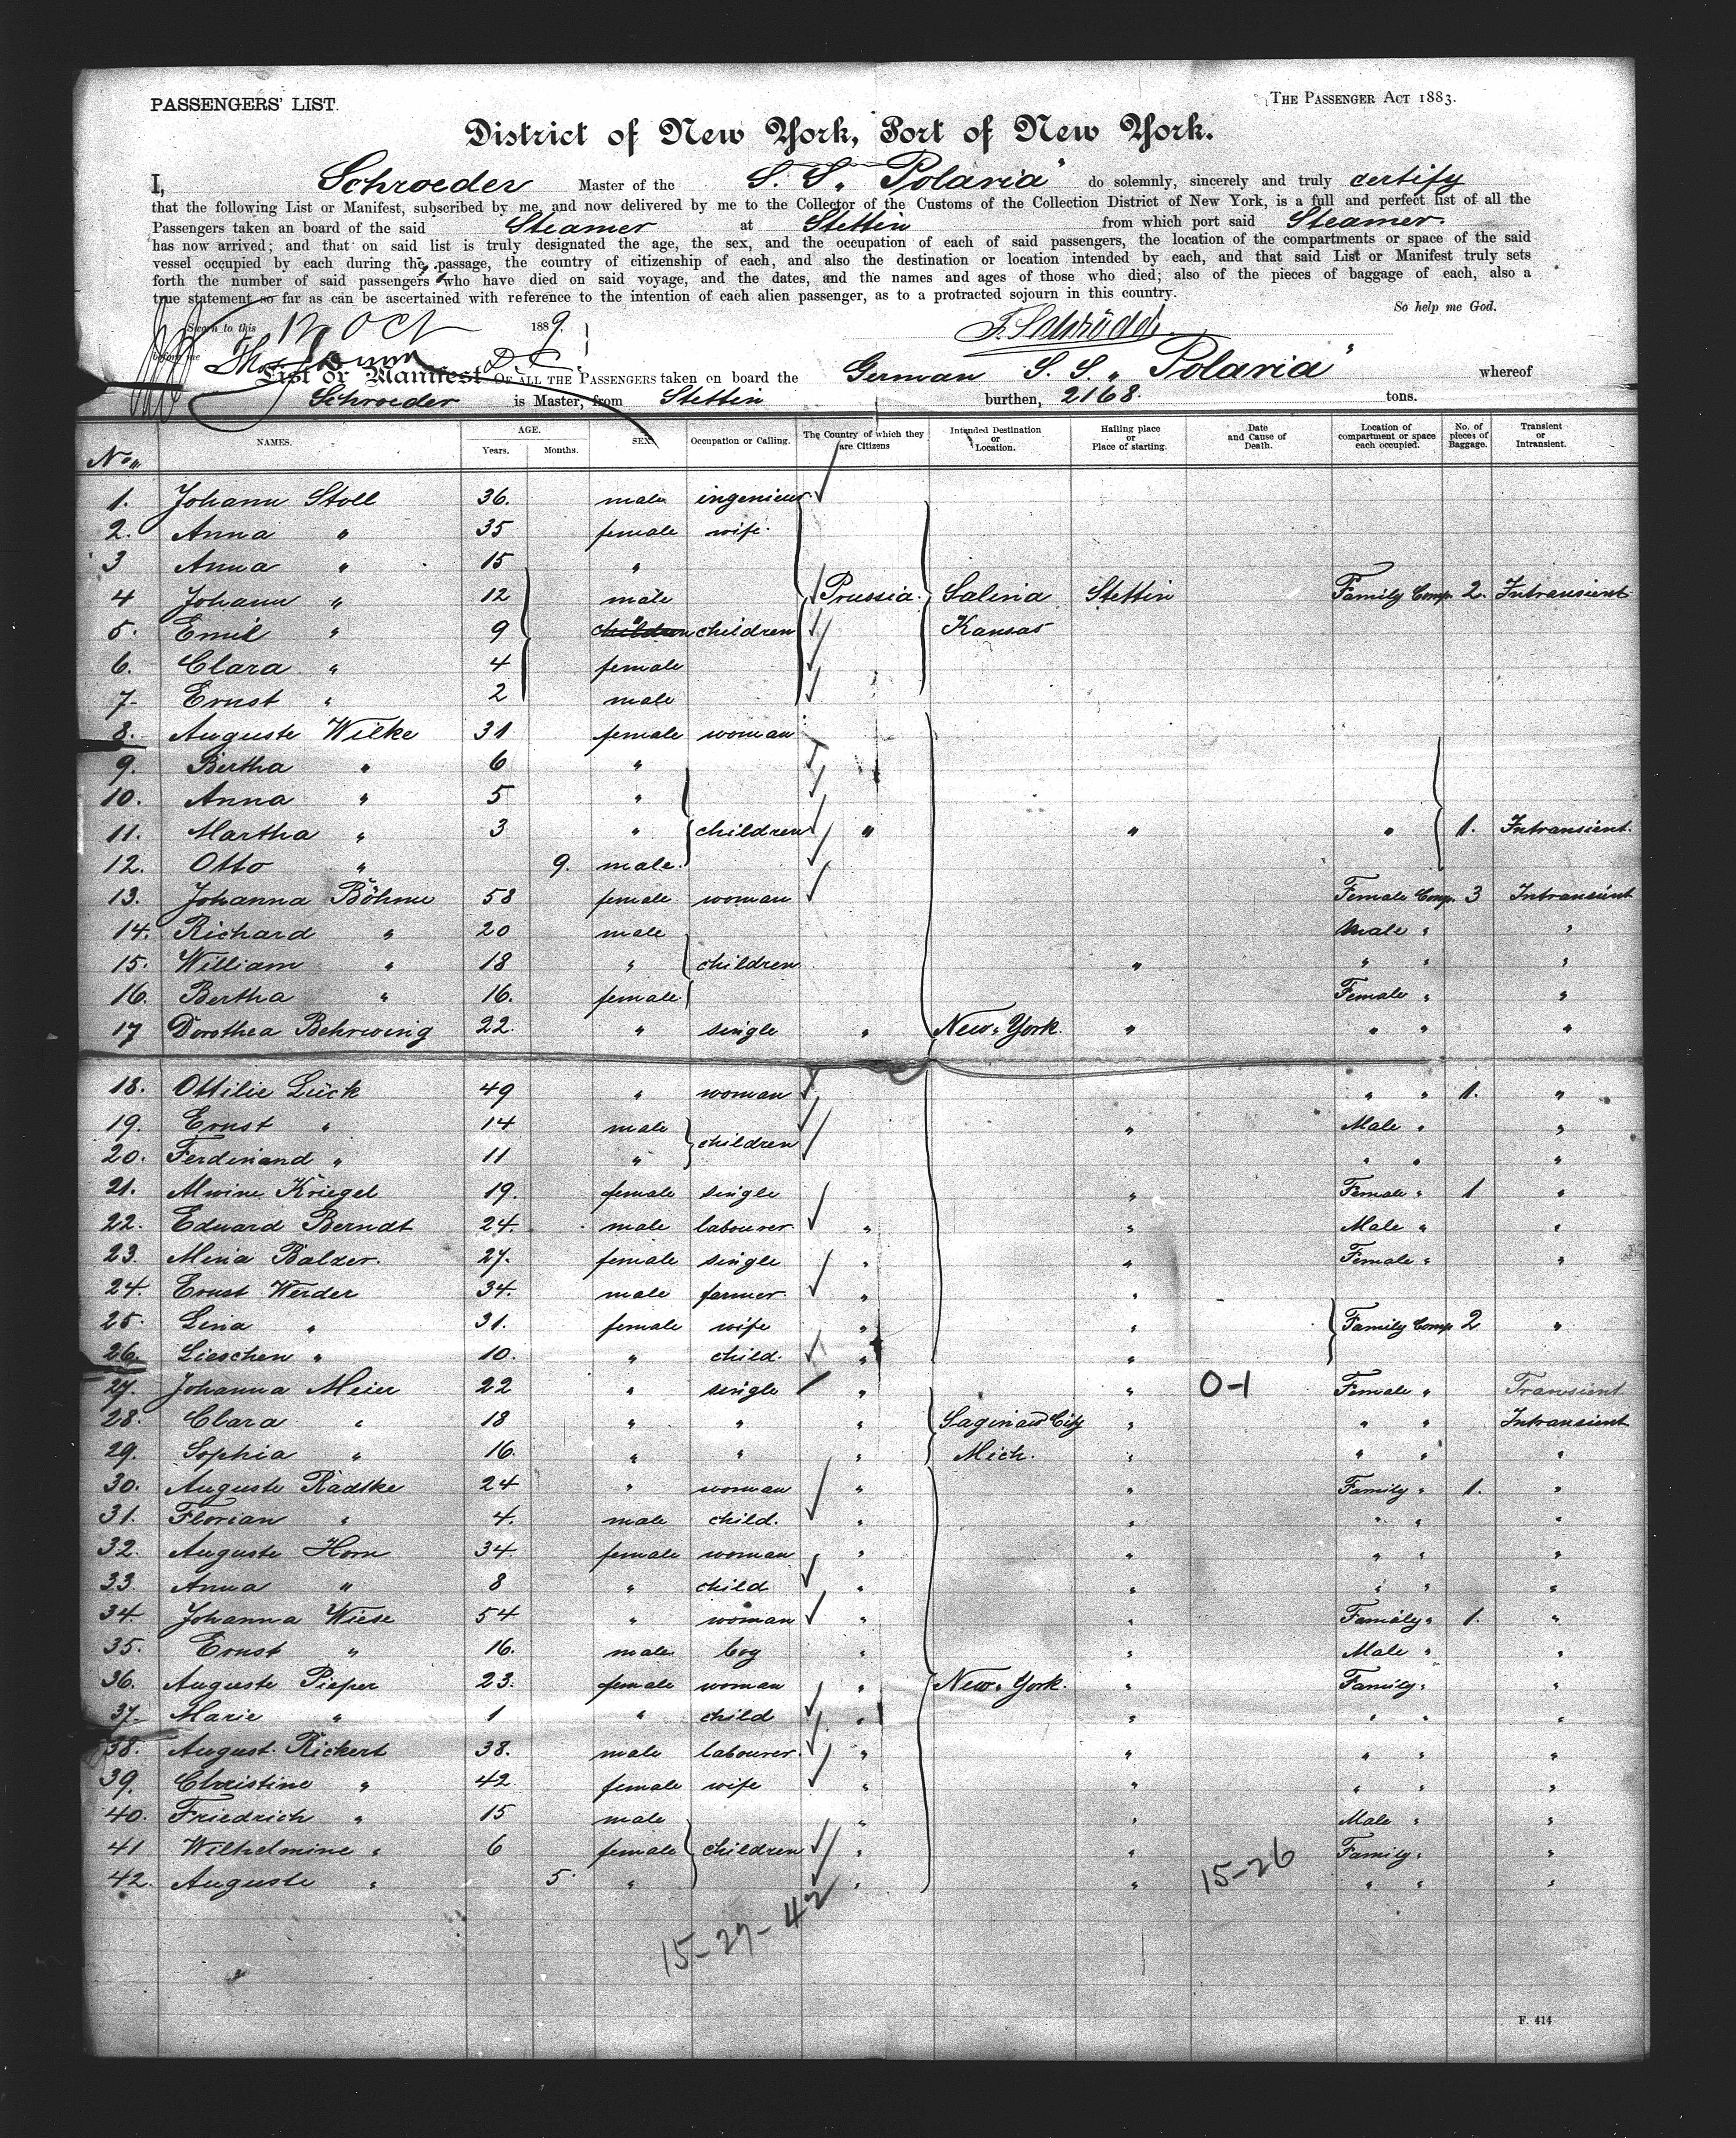 PASSENGERS' LIST.
THE PASSENGER ACT 1883.
District of New York, Port of New York.
I, Schroeder Master of the S. S. „Polaria" do solemnly, sincerely and truly certify
that the following List or Manifest, subscribed by me, and now delivered by me to the Collector of the Customs of the Collection District of New York, is a full and perfect list of all the
Passengers taken an board of the said Steamer at Stettin from which port said Steamer.
has now arrived; and that on said list is truly designated the age, the sex, and the occupation of each of said passengers, the location of the compartments or space of the said
vessel occupied by each during the passage, the country of citizenship of each, and also the destination or location intended by each, and that said List or Manifest truly sets
forth the number of said passengers who have died on said voyage, and the dates, and the names and ages of those who died; also of the pieces of baggage of each, also a
true statement so far as can be ascertained with reference to the intention of each alien passenger, as to a protracted sojourn in this country.
So help me God.
Sworn to this 12 Oct 1889.
before me
List or Manifest OF ALL THE PASSENGERS taken on board the German S. S. „Polaria" whereof
Schroeder is Master, from Stettin burthen, 2168. tons.
No. NAMES. AGE. Years. Months. SEX. Occupation or Calling. The Country of which they are Citizens Intended Destination or Location. Hailing place or Place of starting. Date and Cause of Death. Location of compartment or space each occupied. No. of pieces of Baggage. Transient or Intransient.
1. Johann Stoll 36. male ingenieur.
2. Anna " 35 female wife.
3 Anna " 15 "
4 Johann " 12 male Prussia. Salina Stettin Family Comp. 2. Intransient
5. Emil " 9 children children Kansas
6. Clara " 4 female
7. Ernst " 2 male
8. Auguste Wilke 31 female woman
9. Bertha " 6 "
10. Anna " 5 "
11. Martha " 3 " children " " " 1. Intransient.
12. Otto " 9. male.
13. Johanna Böhme 58 female woman Female Comp. 3 Intransient
14. Richard " 20 male Male " "
15. William " 18 " children " " " "
16. Bertha " 16. female Female " "
17 Dorothea Behrwing 22. " single " New-York. " " " "
18. Ottilie Lück 49 " woman " " 1. "
19. Ernst " 14 male children " Male " "
20. Ferdinand " 11 " " " "
21. Alwine Kriegel 19. female single " Female " 1 "
22. Eduard Berndt 24. male labourer " " Male " "
23. Mina Balzer. 27. female single " " Female " "
24. Ernst Werder 34. male farmer " "
25. Lina " 31. female wife " " Family Comp 2 "
26. Lieschen " 10. " child. " "
27. Johanna Meier 22 " single " " 0-1 Female " Transient
28. Clara " 18 " " " Saginaw City " " " Intransient
29. Sophia " 16. " " " Mich. " " " "
30. Auguste Radtke 24 " woman " " Family " 1. "
31. Florian " 4. male child. " " " " "
32. Auguste Horn 34. female woman " " " " "
33. Anna " 8 " child " " " " "
34. Johanna Wiese 54 " woman " " Family " 1. "
35. Ernst " 16. male boy " " Male " "
36. Auguste Pieper 23. female woman " New-York. " Family " "
37. Marie " 1 " child " " " " "
38. August Rickert 38. male labourer. " " " " "
39. Christine " 42 female wife " " " " "
40. Friedrich " 15 male " " Male " "
41 Wilhelmine " 6 female children " " Family " "
42. Auguste " 5 " " " 15-26 " " "
15-27-42
F. 414